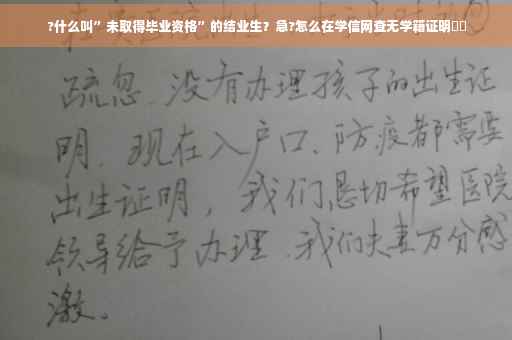 ?什么叫”未取得毕业资格”的结业生？急?怎么在学信网查无学籍证明▯▯
疏忽、没有办理孩子的出生证
明、现在入户口、防疫都需要
出生证明，我们恳切希望医院
领导给予办理、我们夫妻万分感
激。